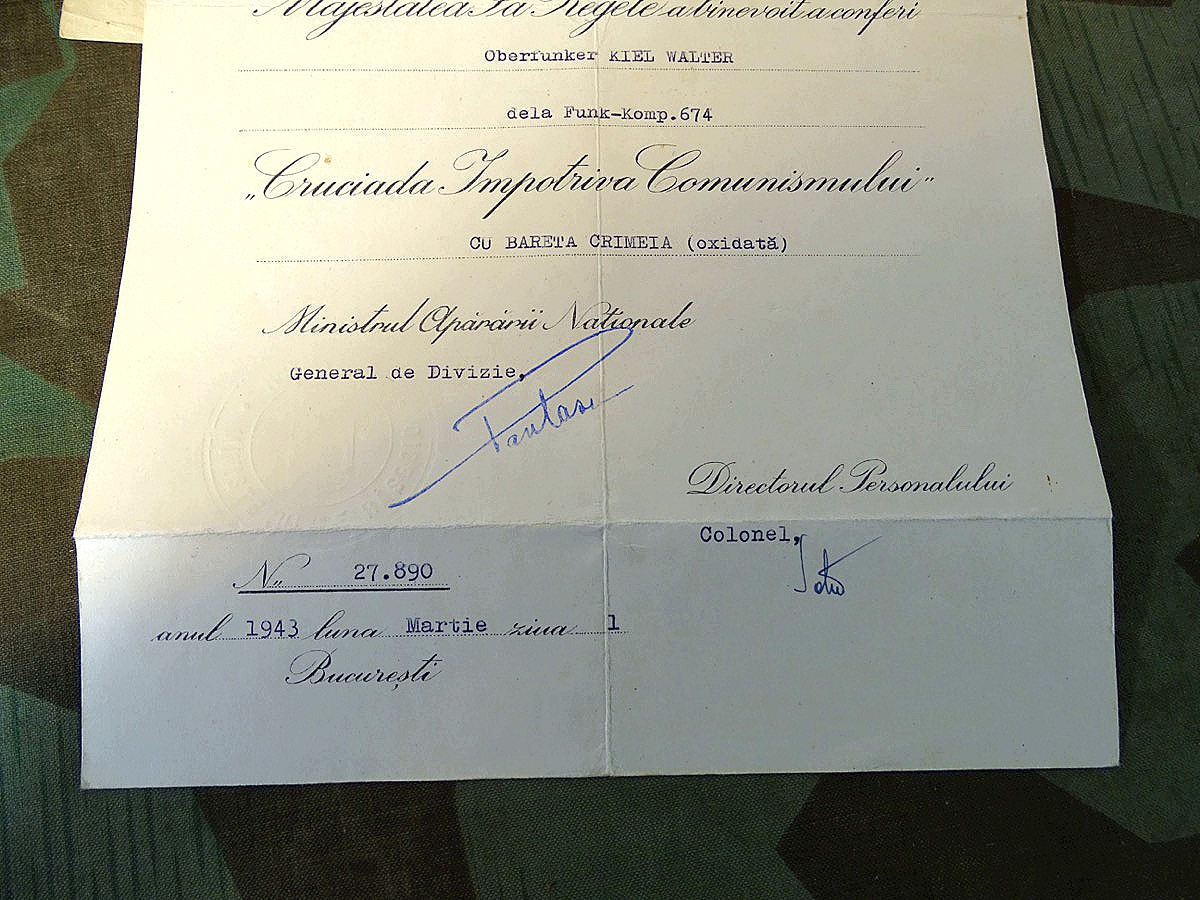 Majestatea Sa Regele a binevoit a conferi
Oberfunker KIEL WALTER
dela Funk-Komp.674
„Cruciada Impotriva Comunismului"
CU BARETA CRIMEIA (oxidată)
Ministrul Apărării Naționale
General de Divizie,
Directorul Personalului
Colonel,
No. 27.890
anul 1943 luna Martie ziua 1
București